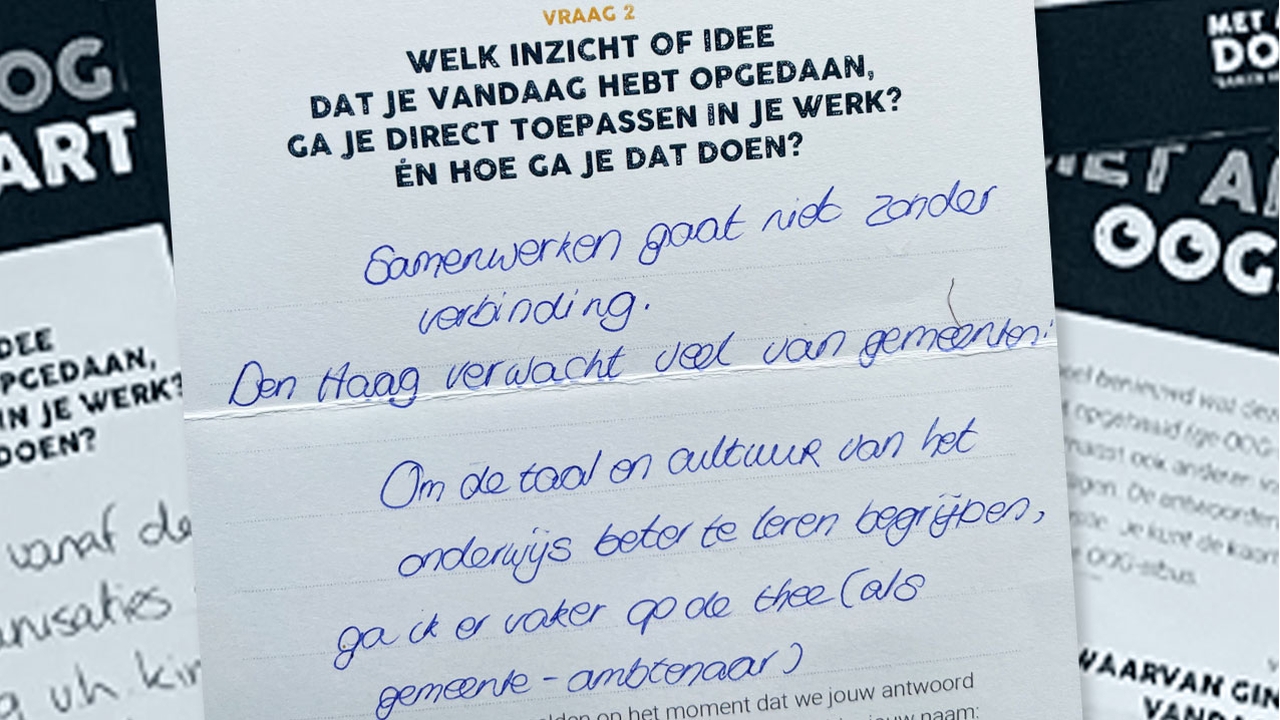 OOG
ART
DEE
PGEDAAN,
IN JE WERK?
DOEN?
vanaf de
anisaties
g v.h. kin
VRAAG 2
WELK INZICHT OF IDEE
DAT JE VANDAAG HEBT OPGEDAAN,
GA JE DIRECT TOEPASSEN IN JE WERK?
ÉN HOE GA JE DAT DOEN?
Samenwerken gaat niet zonder
verbinding.
Den Haag verwacht veel van gemeenten!
Om de taal en cultuur van het
onderwijs beter te leren begrijpen,
ga ik er vaker op de thee (als
gemeente-ambtenaar)
op het moment dat we jouw antwoord
jouw naam:
MET A
DO
MET AN
OOG
benieuwd wat deze
opgehaald
naast ook anderen
De antwoorden
Je kunt de kaart
OOG-sibus.
WAARVAN GIN
VAND